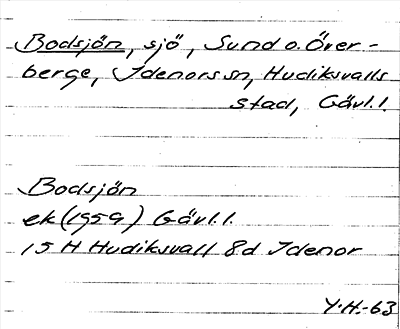 Bodsjön, sjö, Sund o. Över-
berge, Idenors sn, Hudiksvalls
stad, Gävl.l.
Bodsjön
ek (1959) Gävl.l.
15 H Hudiksvall 8d Idenor
Y.H.-63